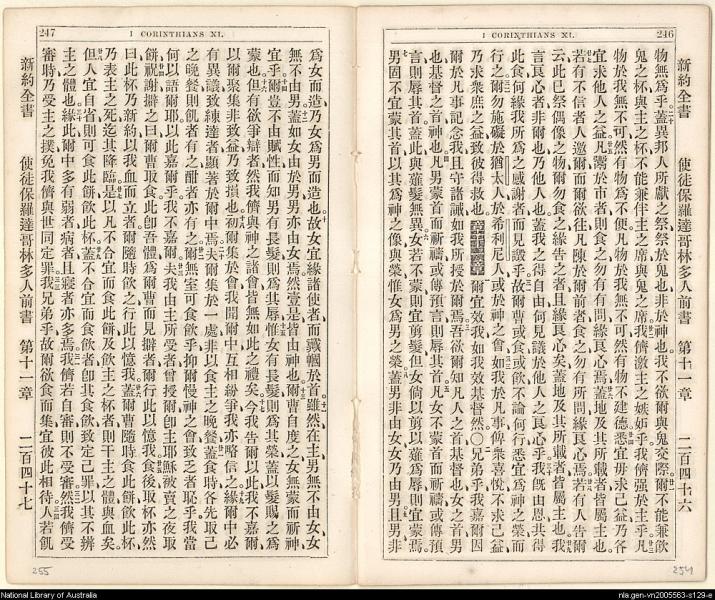 I CORINTHIANS XI.
246
新約全書 使徒保羅達哥林多人前書 第十一章 二百四十六
物無爲乎蓋異邦人所獻之祭祭於鬼也非於神也我不欲爾與鬼交際爾不能兼飲
鬼之杯與主之杯不能兼伴主之席與鬼之席我儕激主之嫉妒乎我儕强於主乎凡
物於我無不可然有物爲不便凡物於我無不可然有物不建德悉宜毋求己益乃各
宜求他人之益凡鬻於市者則食之勿有問緣良心焉蓋地及其所載者皆屬主也
若有不信者人邀爾而爾欲往凡陳於爾前者食之勿有所問緣良心焉若有人告爾
云此已祭偶像之物爾勿食之緣告之者且緣良心矣蓋地及其所載者皆屬主也我
言良心者非爾也乃他人也蓋我之得自由何見議於他人之良心乎我旣由恩共得
此食何緣我所爲之感謝者而見謗乎故爾曹或食或飲不論何行悉宜爲神之榮而
行之爾勿施礙於猶太人於希利尼人或於神之會如我於凡事俾衆喜悅不求己益
乃求衆庶之益致彼得救也 第十一章 爾宜效我如我效基督然○兄弟乎我嘉爾因
爾於凡事記念我且守諸誡如我所授於爾焉吾欲爾知凡人之首基督也女之首男
也基督之首神也凡男蒙首而祈禱或傳預言則辱其首凡女不蒙首而祈禱或傳預
言則辱其首蓋此與薙髮無異女若不蒙則宜剪髮但女倘以剪以薙爲辱則宜蒙焉
男固不宜蒙其首以其爲神之像與榮惟女爲男之榮蓋男非由女女乃由男且男非
254
247
I CORINTHIANS XI.
爲女而造乃女爲男而造也故女宜緣諸使者而識幗於首雖然在主男無不由女女
無不由男蓋如女由於男男亦由女焉然壹是皆由神也爾曹自度之女無蒙而祈神
宜乎爾豈不由賦性而知男有長髮則爲其辱惟女有長髮則爲其榮蓋以髮賜之爲
蒙也但有欲爭辯者然我儕與神之諸會皆無如此之禮矣今我告爾以此我不嘉爾
以爾聚集非致益乃致損也初爾集於會我聞爾中互相紛爭我亦略信之緣爾中必
有異議致練達者顯著於爾中焉夫爾集於一處非以食主之晚餐蓋食時各先取己
之晚餐則飢者有之酣者亦有之爾無室可食飲乎抑爾慢神之會致乏者恥乎我當
何以語爾耶以此嘉爾乎我不嘉爾夫我由主所受者曾授爾卽主耶穌被賣之夜取
餅祝謝擘之曰爾曹取食此卽吾體爲爾曹而見擘者爾行此以憶我食後取杯亦然
曰此杯乃新約以我血而立者爾隨時飲之行此以憶我蓋爾曹隨時食此餅飲此杯
乃表主之死迄其降臨是以凡不合宜而食此餅及飲主之杯者則干主之體與血矣
但人宜自省則可食此餅飲此杯蓋不合宜而食飲者卽其食飲致定己罪以其不辨
主之體也緣此爾中多有弱者病者且寢者亦多焉我儕若自審則不受審然我儕受
審時乃受主之撲免我儕與世同定罪我兄弟乎故爾欲食而集宜彼此相待人若飢
新約全書 使徒保羅達哥林多人前書 第十一章 二百四十七
255
National Library of Australia
nla.gen-vn2005563-s129-e